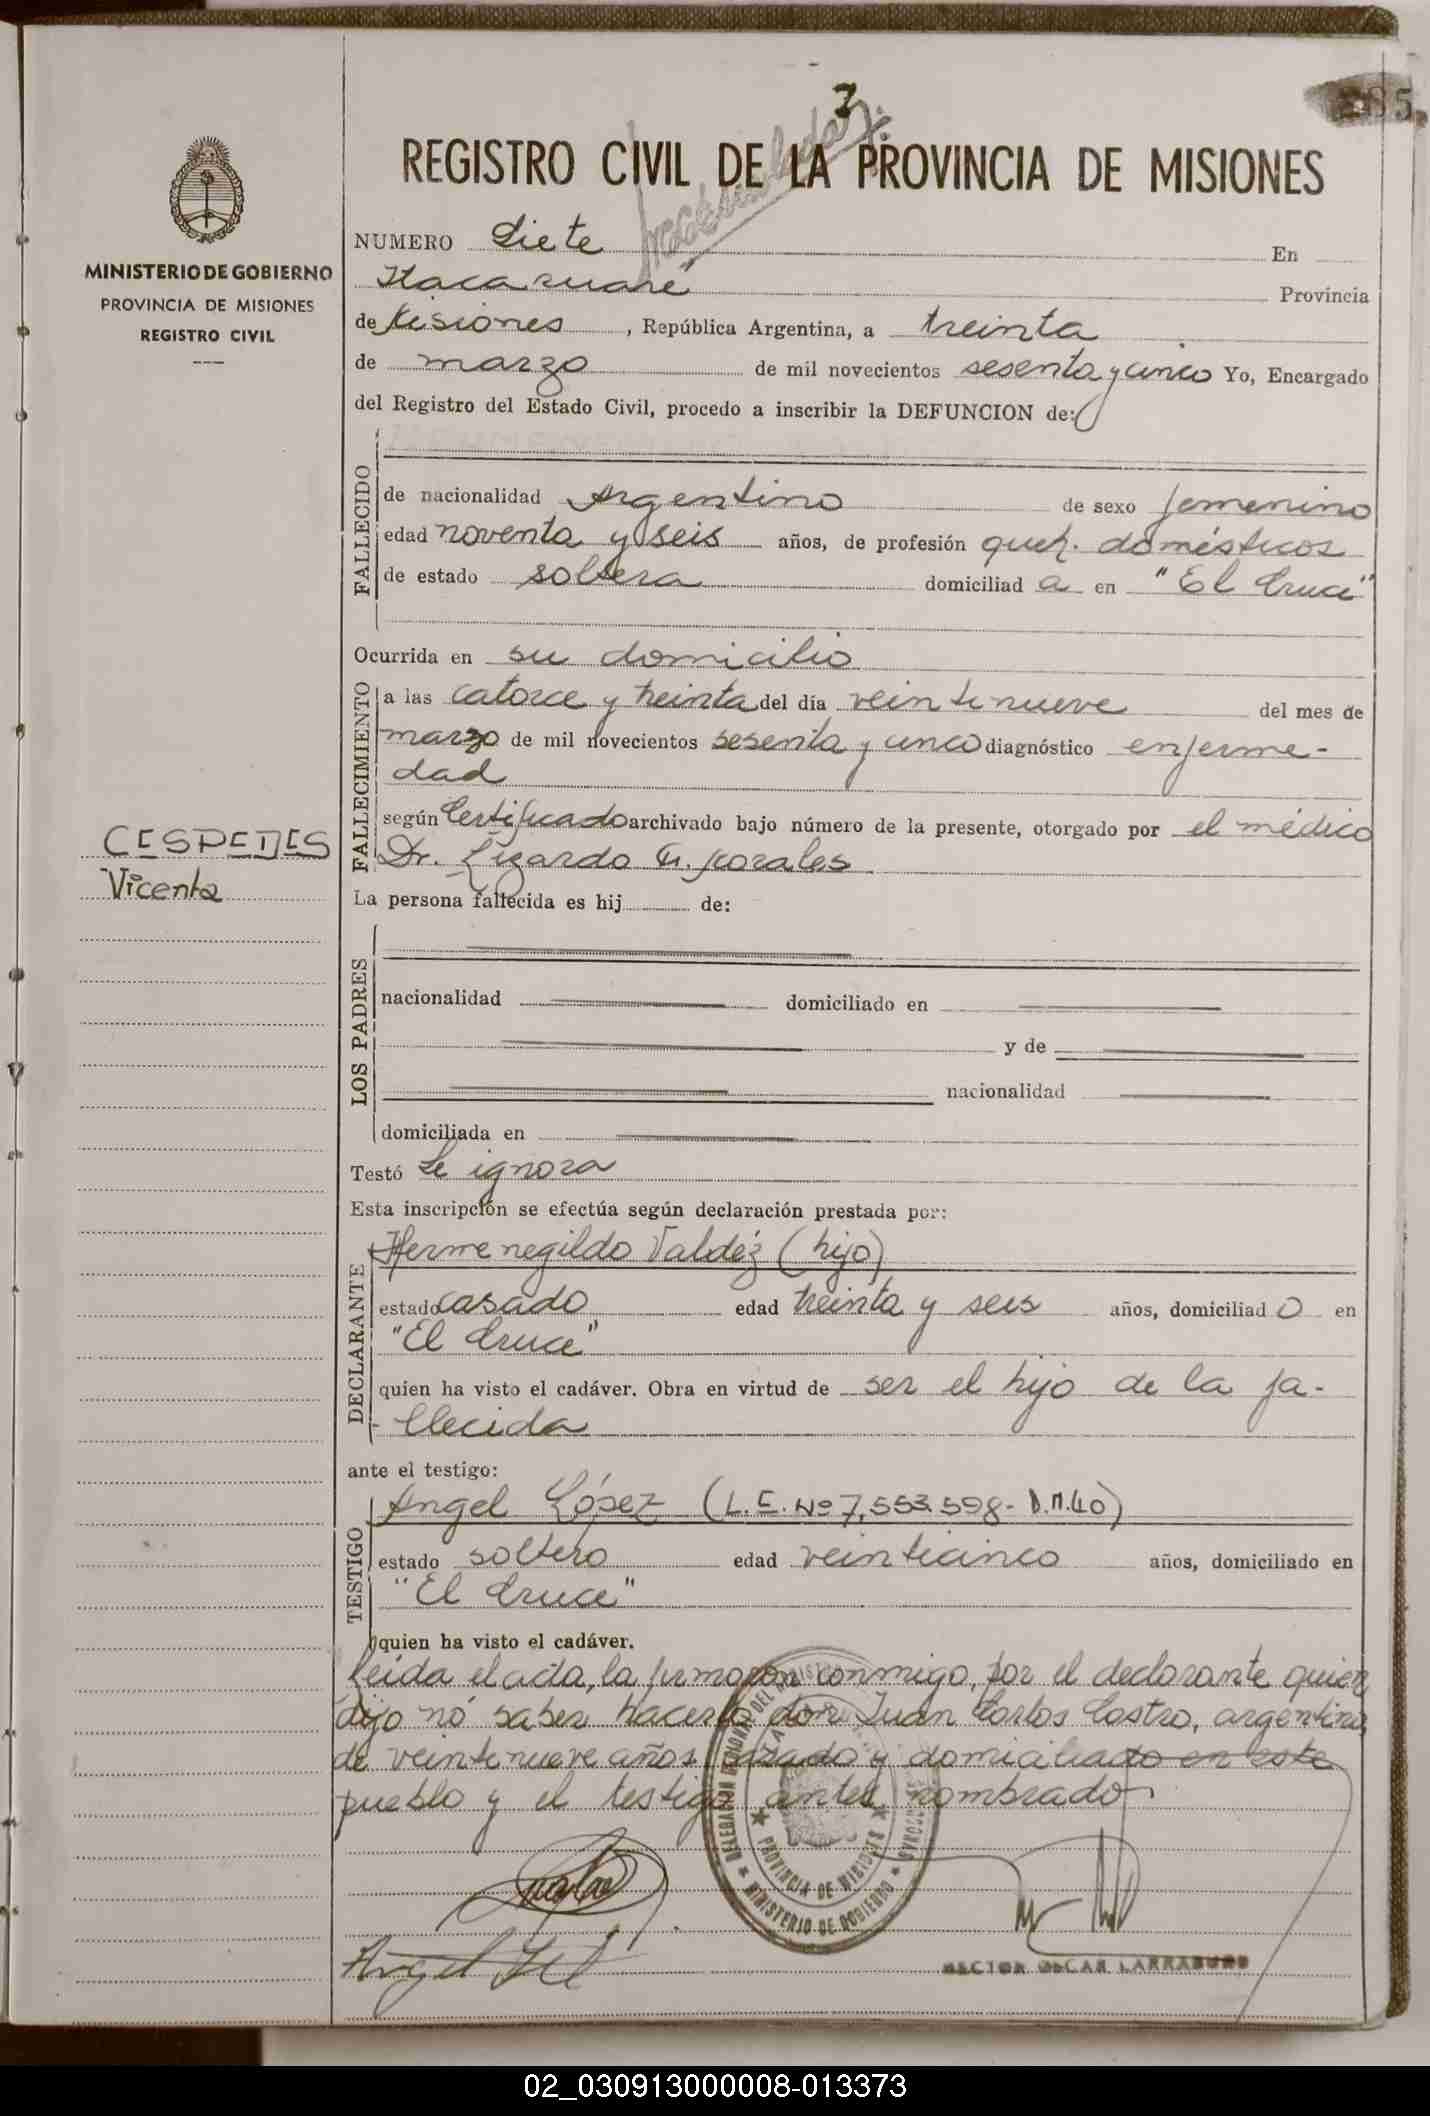 7
REGISTRO CIVIL DE LA PROVINCIA DE MISIONES
MINISTERIO DE GOBIERNO
PROVINCIA DE MISIONES
REGISTRO CIVIL
NUMERO Siete En
Itacaruaré Provincia
de Misiones, República Argentina, a treinta
de marzo de mil novecientos sesenta y cinco Yo, Encargado
del Registro del Estado Civil, procedo a inscribir la DEFUNCION de:
FALLECIDO
de nacionalidad Argentino de sexo femenino
edad noventa y seis años, de profesión queh. domésticos
de estado soltera domiciliad a en "El Cruce"
Ocurrida en su domicilio
FALLECIMIENTO
a las catorce y treinta del día veintinueve del mes de
marzo de mil novecientos sesenta y cinco diagnóstico enferme-
dad
según Certificado archivado bajo número de la presente, otorgado por el médico
Dr. Lizardo Morales
CESPEDES
Vicenta
La persona fallecida es hij de:
LOS PADRES
nacionalidad domiciliado en
y de
nacionalidad
domiciliada en
Testó Se ignora
Esta inscripción se efectúa según declaración prestada por:
DECLARANTE
Hermenegildo Valdéz (hijo)
estado casado edad treinta y seis años, domiciliad o en
"El Cruce"
quien ha visto el cadáver. Obra en virtud de ser el hijo de la fa-
llecida
ante el testigo:
TESTIGO
Angel López (L.E. Nº 7.553.598- D.M.40)
estado soltero edad veinticinco años, domiciliado en
"El Cruce"
quien ha visto el cadáver.
Leida el acta, la firmaron conmigo, por el declarante quien
dijo nó saber hacerlo don Juan Carlos Castro, argentino,
de veintinueve años, casado y domiciliado en este
pueblo y el testigo antes nombrado
PROVINCIA DE MISIONES
MINISTERIO DE GOBIERNO
Angel
HECTOR OSCAR LARRABURU
02_030913000008-013373